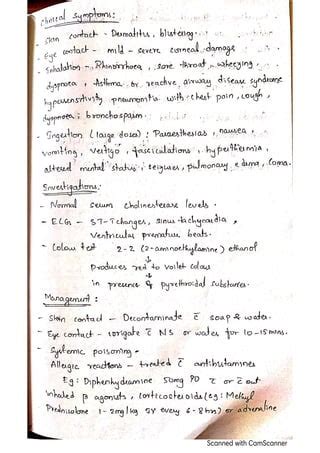 Clinical symptoms:
- Skin contact - Dermatitis, blistering.
- Eye contact - mild - severe corneal damage
- Inhalation - Rhinorrhoea, sore throat, wheezing,
dyspnoea, Asthma or reactive airway disease syndrome
hypersensitivity pneumonitis with chest pain, cough,
dyspnoea, bronchospasm.
- Ingestion (large doses): Paraesthesias, nausea,
vomiting, vertigo, fasciculations, hyperthermia,
altered mental status, seizures, pulmonary edema, Coma.
Investigations:
- Normal serum cholinesterase levels.
- ECG - ST-T changes, sinus tachycardia,
Ventricular premature beats.
- Colour test 2-2 (2-aminoethylamine) ethanol
↓
Produces red to voilet colour
↓
in presence of pyrethroidal substances.
Management:
- Skin contact - Decontaminate c̄ soap & water.
- Eye contact - irrigate c̄ NS or water for 10-15 mins.
- Systemic poisoning -
Allergic reactions - treated c̄ antihistamines
Eg: Diphenhydramine 50mg PO c̄ or c̄out
inhaled β agonists, corticosteroids (eg: Methyl
Prednisolone 1-2mg/kg IV every 6-8 hrs) or adrenaline
Scanned with CamScanner